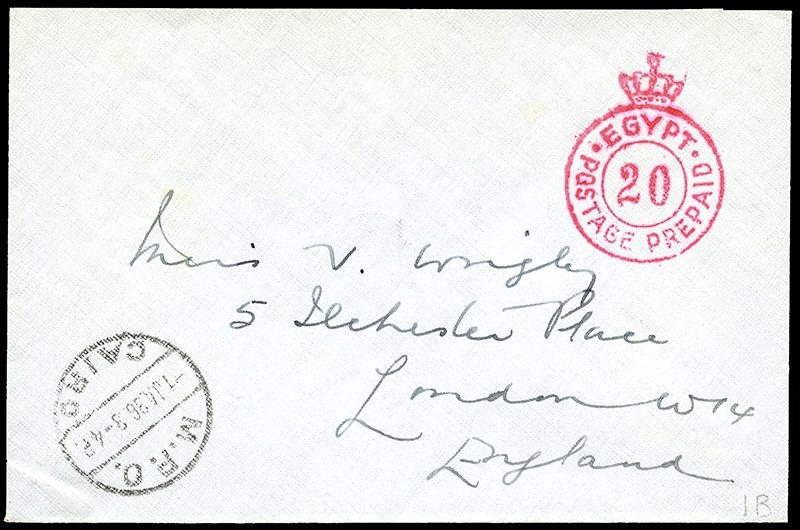 EGYPT
20
POSTAGE PREPAID
Miss V. Wrigley
5 Ilchester Place
London W14
England
CAIRO
-1.JA.36.3-4P.
M.P.O.
1B